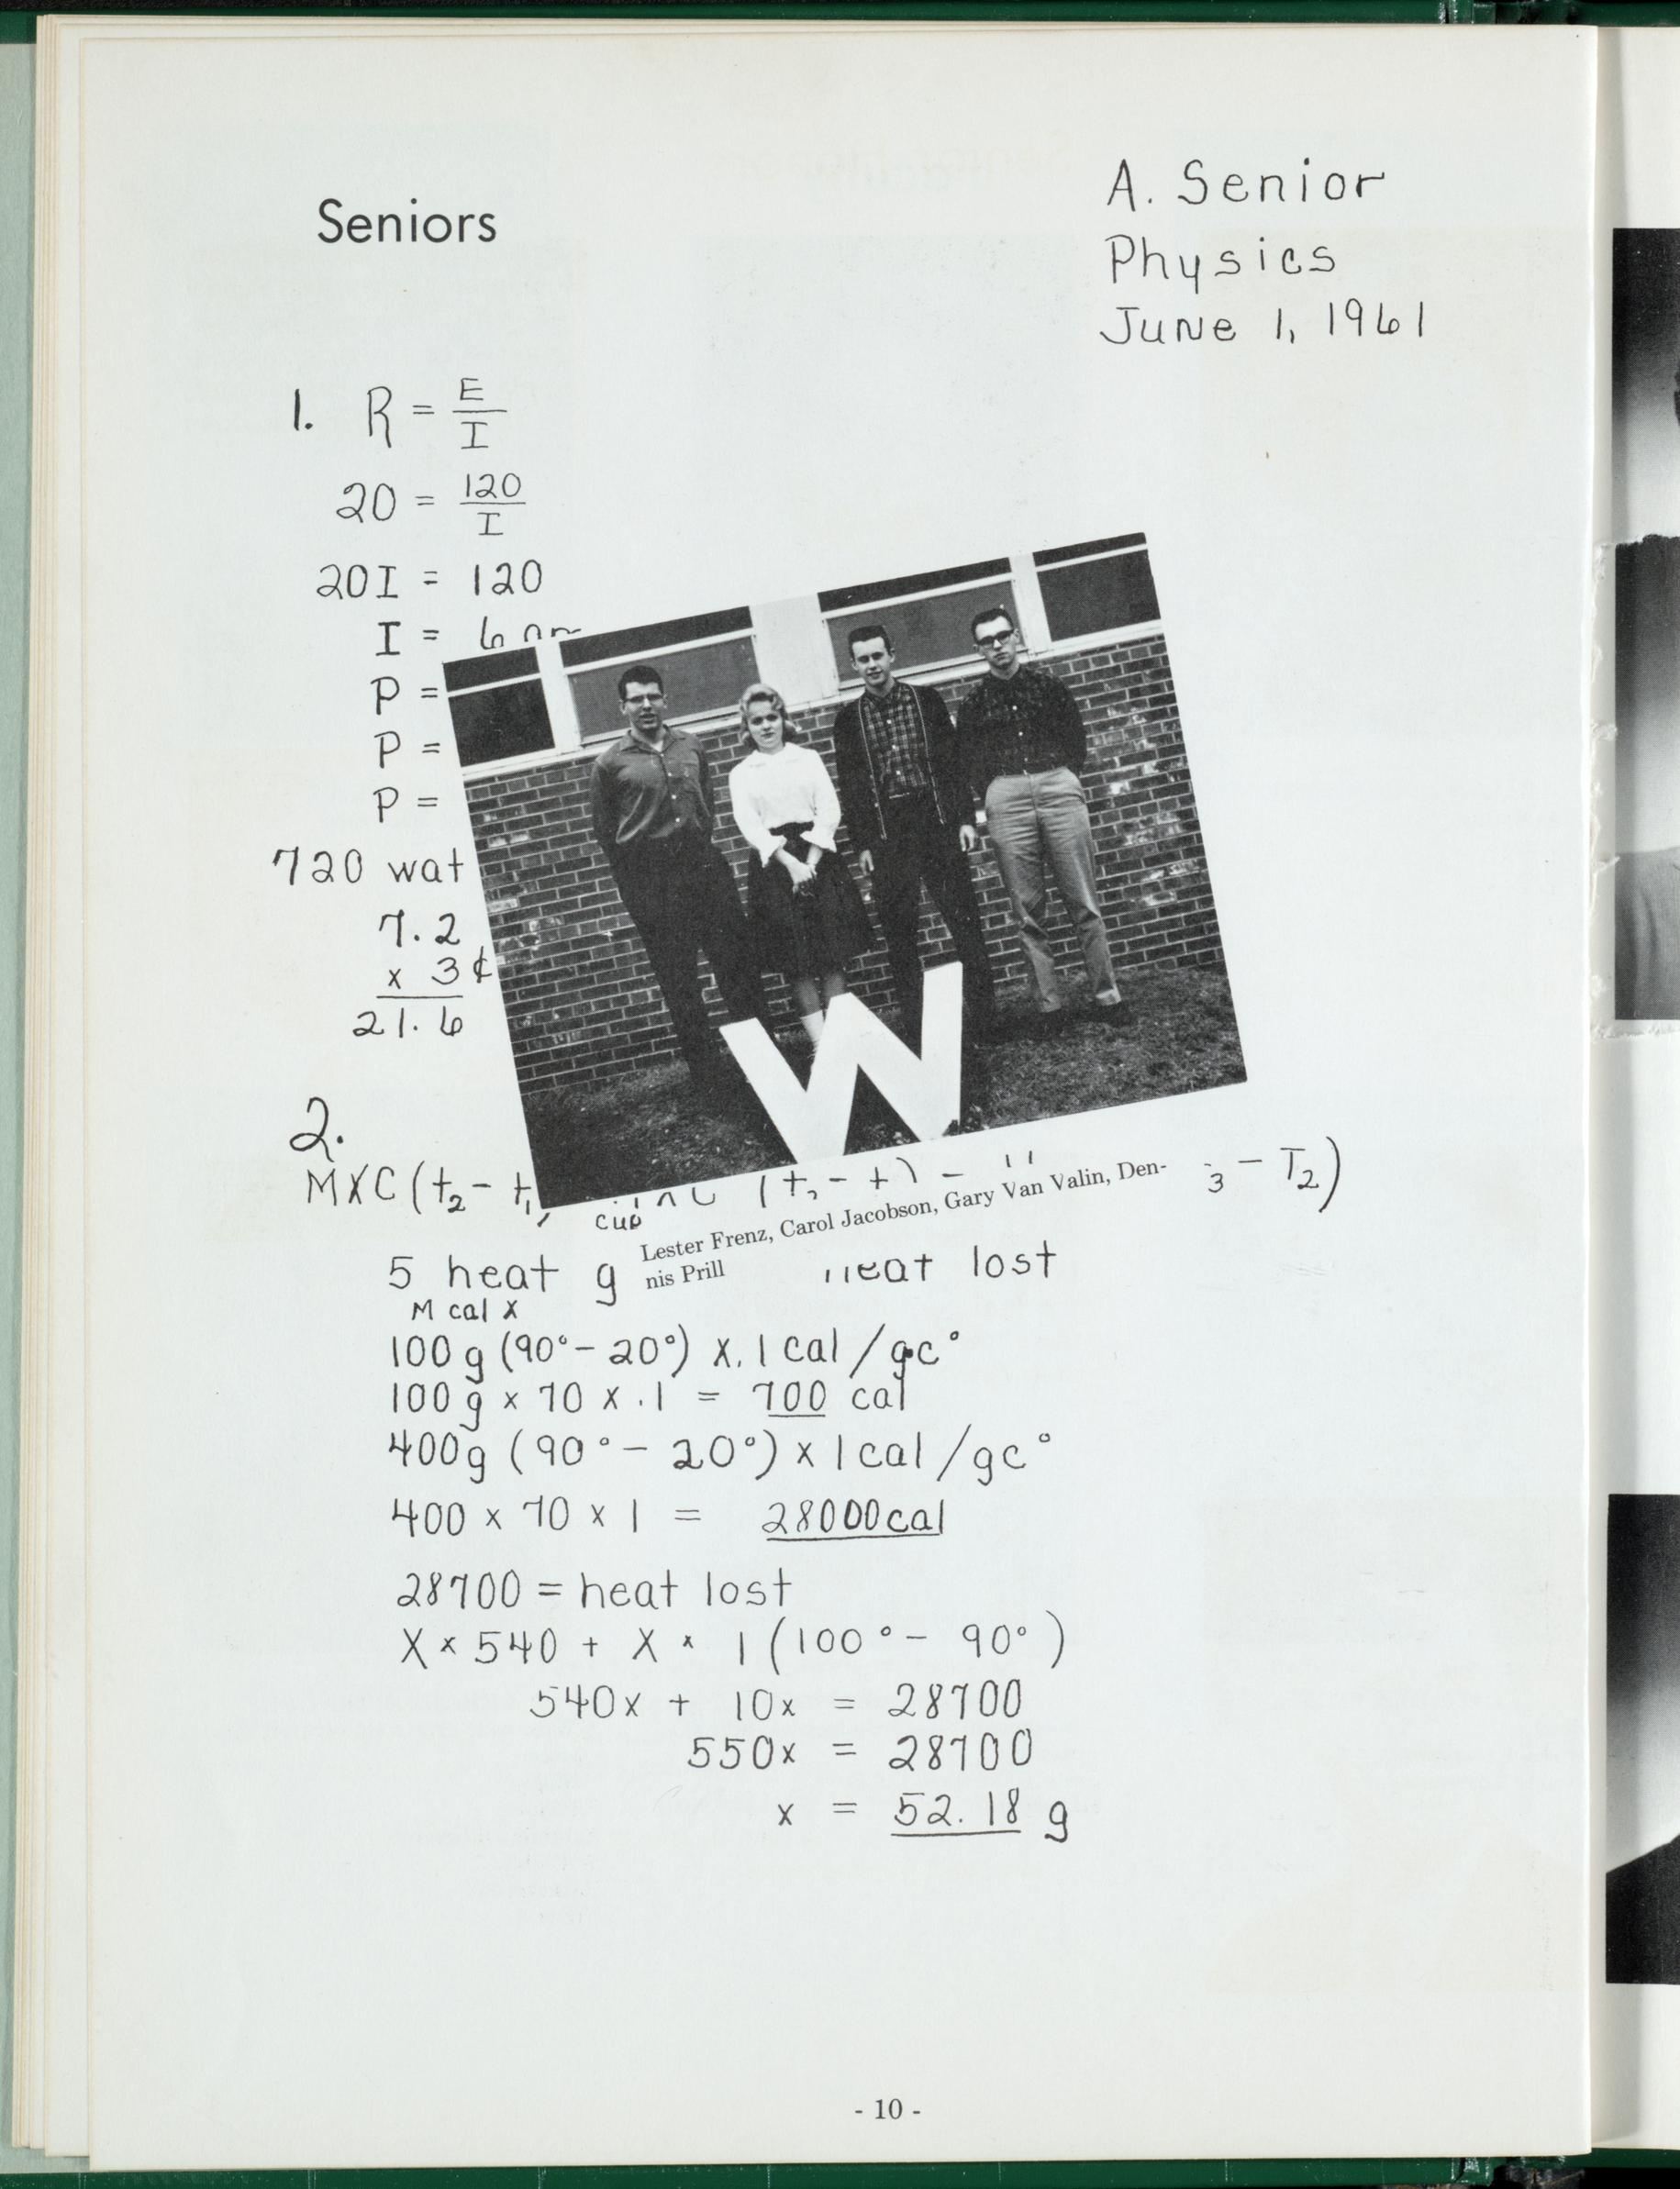 Seniors
A. Senior
Physics
June 1, 1961
1. R = E/I
20 = 120/I
20I = 120
I = 6
P =
P =
P =
720 wat
7.2
x 3¢
21.6
2.
MXC (t₂ - t₁) (t₂ - t) - ₃ - T₂)
cup
Lester Frenz, Carol Jacobson, Gary Van Valin, Den-
nis Prill
5 heat g heat lost
M cal x
100g (90° - 20°) x .1 cal/gc°
100g x 70 x .1 = 700 cal
400g (90° - 20°) x 1 cal/gc°
400 x 70 x 1 = 28000 cal
28700 = heat lost
X x 540 + X x 1 (100° - 90°)
540x + 10x = 28700
550x = 28700
x = 52.18 g
W
- 10 -